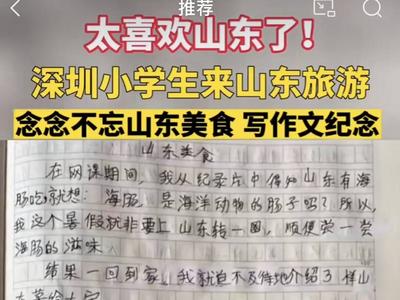 推荐
太喜欢山东了！
深圳小学生来山东旅游
念念不忘山东美食 写作文纪念
山东美食
在网课期间，我从纪录片中得知山东有海
肠吃，就想：海肠，是海洋动物的肠子吗？所以，
我这个暑假就非要上山东转一圈，顺便尝一尝
海肠的滋味。
结果一回到家，我就迫不及待地介绍了样山